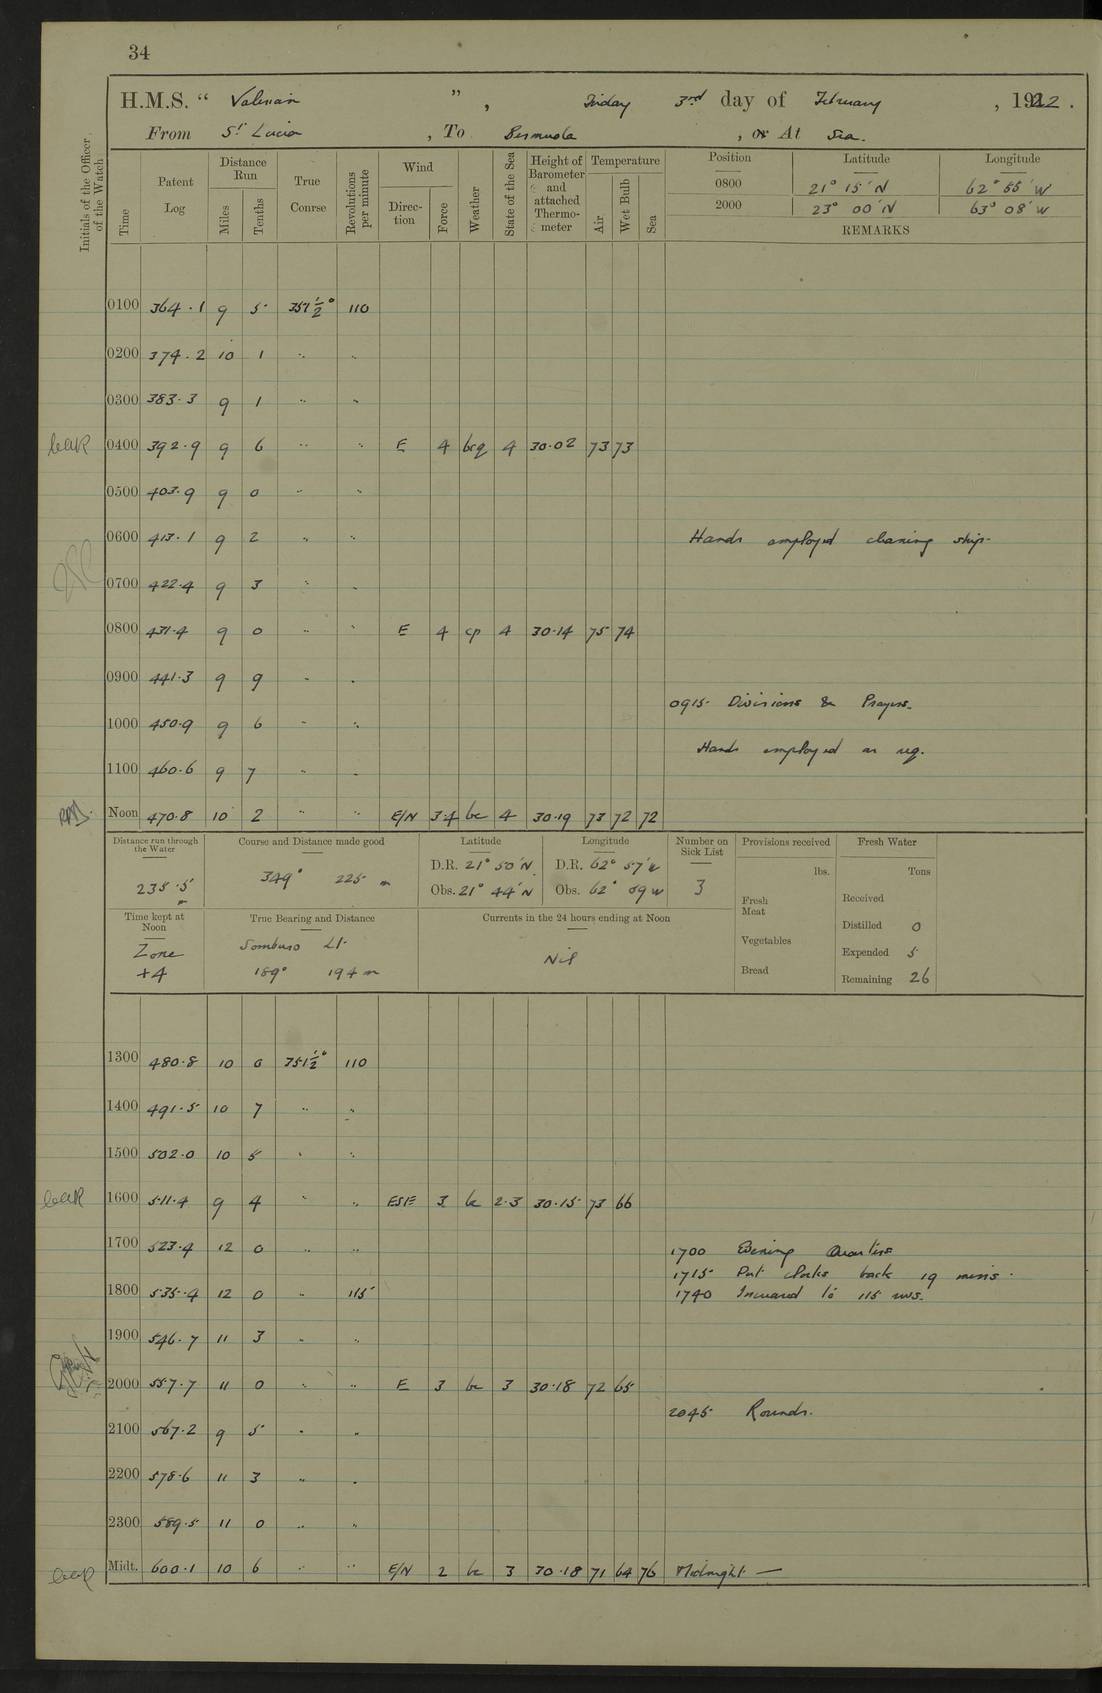 34
H.M.S. “ Valerian ” , Friday 3rd day of February , 1922 .
From St Lucia , To Bermuda , or At Sea.
Initials of the Officer of the Watch
Time
Patent Log
Distance Run
Miles
Tenths
True Course
Revolutions per minute
Wind
Direction
Force
Weather
State of the Sea
Height of Barometer and attached Thermometer
Temperature
Air
Wet Bulb
Sea
Position Latitude Longitude
0800 21° 15' N 62° 55' W
2000 23° 00' N 63° 08' W
REMARKS
0100 364.1 9 5 351½° 110
0200 374.2 10 1 " "
0300 383.3 9 1 " "
0400 392.9 9 6 " " E 4 bcq 4 30.02 73 73
0500 403.9 9 0 " "
0600 413.1 9 2 " " Hands employed cleaning ship.
0700 422.4 9 3 " "
0800 431.4 9 0 " " E 4 cp 4 30.14 75 74
0900 441.3 9 9 " "
0915. Divisions & Prayers.
1000 450.9 9 6 " "
Hands employed as req.
1100 460.6 9 7 " "
Noon 470.8 10 2 " " E/N 3.4 bc 4 30.19 73 72 72
Distance run through the Water
235.5
Course and Distance made good
349° 225 m
Latitude
D.R. 21° 50' N
Obs. 21° 44' N
Longitude
D.R. 62° 57' W
Obs. 62° 09 W
Number on Sick List
3
Provisions received
lbs.
Fresh Meat
Vegetables
Bread
Fresh Water
Tons
Received
Distilled 0
Expended 5
Remaining 26
Time kept at Noon
Zone
+4
True Bearing and Distance
Sombrero Lt.
189° 194 m
Currents in the 24 hours ending at Noon
Nil
1300 480.8 10 0 351½° 110
1400 491.5 10 7 " "
1500 502.0 10 5 " "
1600 511.4 9 4 " " ESE 3 bc 2.3 30.15 73 66
1700 523.4 12 0 " " 1700 Evening Quarters
1715 Put clocks back 19 mins.
1800 535.4 12 0 " 115 1740 Increased to 115 revs.
1900 546.7 11 3 " "
2000 557.7 11 0 " " E 3 bc 3 30.18 72 65
2045 Rounds.
2100 567.2 9 5 " "
2200 578.6 11 3 " "
2300 589.5 11 0 " "
Midt. 600.1 10 6 " " E/N 2 bc 3 30.18 71 64 76 Midnight —